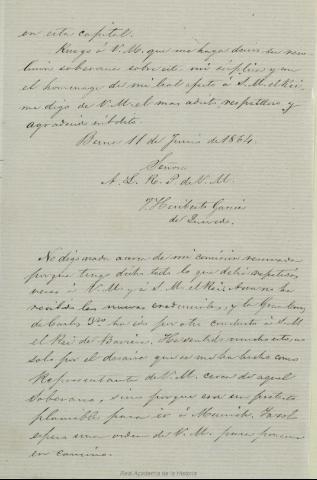 en esta capital.
Ruego á V. M. que me haga decir su reso-
lucion soberana sobre esta mi súplica y con
el homenage de mi leal afecto á S. M. el Rei,
me digo de V. M. el mas adicto, respetuoso y
agradecido súbdito.
Berna 11 de Junio de 1864.
Señora
A. L. R. P. de V. M.
J. Heriberto García
de Quevedo.
No digo nada acerca de mi comision reservada
porque tengo dicho todo lo que debia repetidas
veces á V. M. y á S. M. el Rei. Aun no ha
recibido las nuevas credenciales, y la Gran Cruz
de Carlos 3º ha ido por otro conducto á S. M.
el Rei de Baviera. He sentido mucho esto, no
solo por el desaire que se me ha hecho como
Representante de V. M. cerca de aquel
soberano, sino porque era un pretesto
plausible para ir á Munich. Solo
espero una orden de V. M. para ponerme
en camino.
Real Academia de la Historia